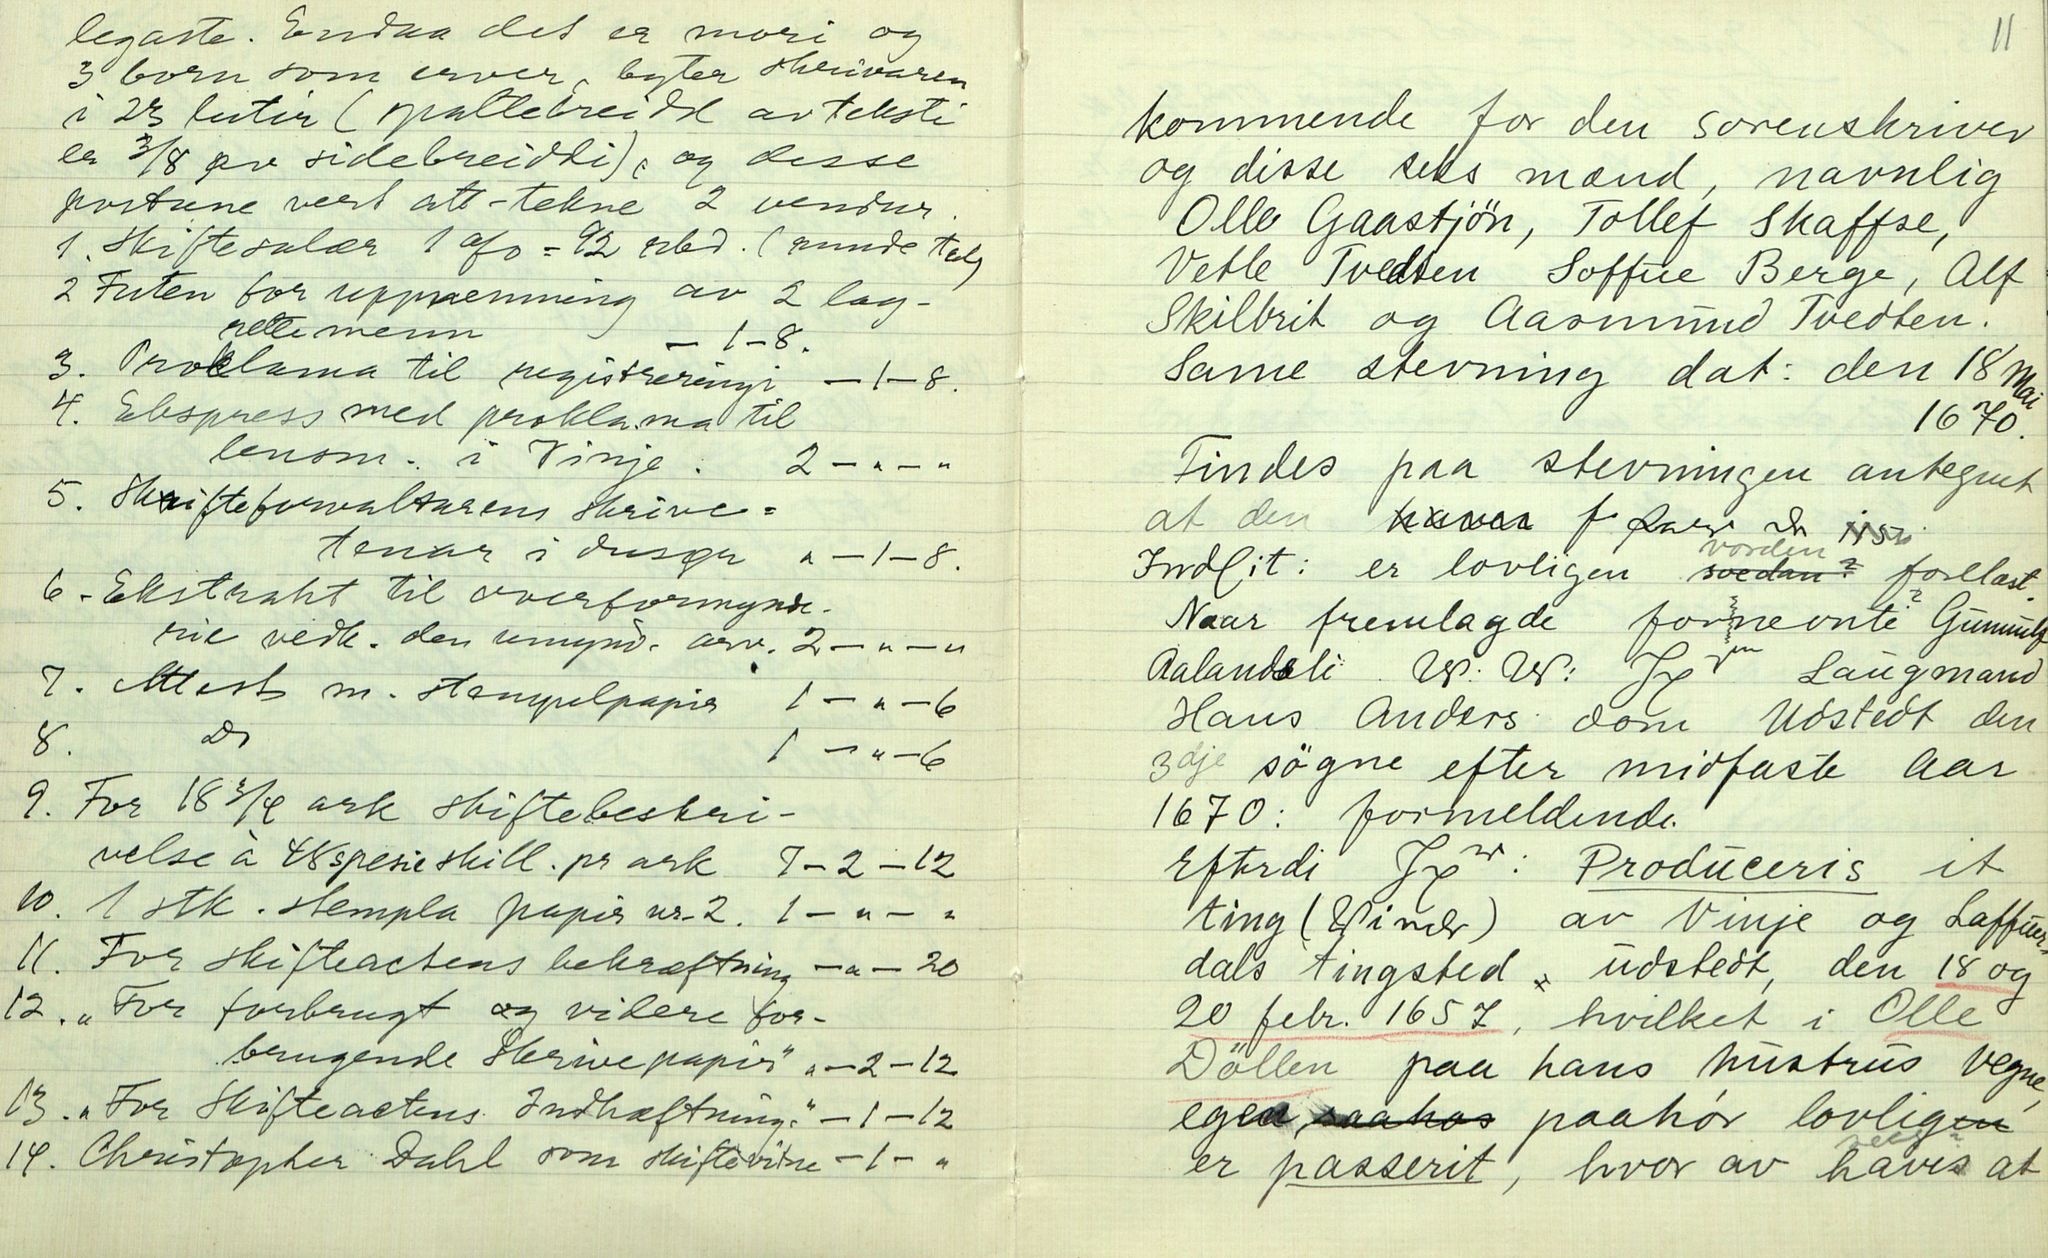 legaste. Endaa det er mori og
3 born som erver, byter skrivaren
i 23 luter (spaltebreidd av teksti
er 3/8 av sidebreiddi), og desse
postane vert att-tekne 2 vendur.
1. Skiftesalær 1 ofo = 92 rbd. (runde tal)
2 Futen for uppnemning av 2 lag-
rettemenn — 1 — 8.
3. Proklama til registreringi — 1 — 8.
4. Ekspress med proklama til
lensm. i Vinje. 2 — " — "
5. Skifteforvaltarens skrive-
tenar i " — 1 — 8.
6 - Ekstrakt til overformynde-
rie vedk. den umynd. arv. 2 — " — "
7. Attest m. stempelpapir 1 — " — 6
8. Do 1 — " — 6
9. For 18 3/4 ark skiftebeskri-
velse à 48 spesieskill. pr ark 7 — 2 — 12
10. 1 stk. stempla papir nr. 2. 1 — " — "
11. For skifteactens bekræftning — " — 20
12. " For forbrugt og videre for-
brugende Skrivepapir" " — 2 — 12
13. " For Skifteactens Indhæftning." — 1 — 12
14. Christopher Dahl som skiftevitne — 1 — "
11
kommende for den sorenskriver
og disse seks mænd, navnlig
Olle Gaastjön, Tollef Skaffse,
Vetle Tvedten Soffue Berge, Alf
Skilbrit og Aasmund Tvedten.
Same stevning dat: den 18 Mai
1670.
Findes paa stevningen antegnet
at den
Indlit: er lovligen vorden forelæst.
Naar fremlagde fornevnte Gunnulf
Aalandsli W: W: Laugmand
Hans Anders dom Udstedt den
3dje sögne efter midfaste Aar
1670: formeldende.
Efterdi : Produceris it
ting( ) av Vinje og Laffuer-
dals tingsted x udstedt, den 18 og
20 febr. 1657, hvilket i Olle
Döllen paa hans hustrus Vegne,
egen, saahas paahör lovligen
er passerit, hvor av haves at